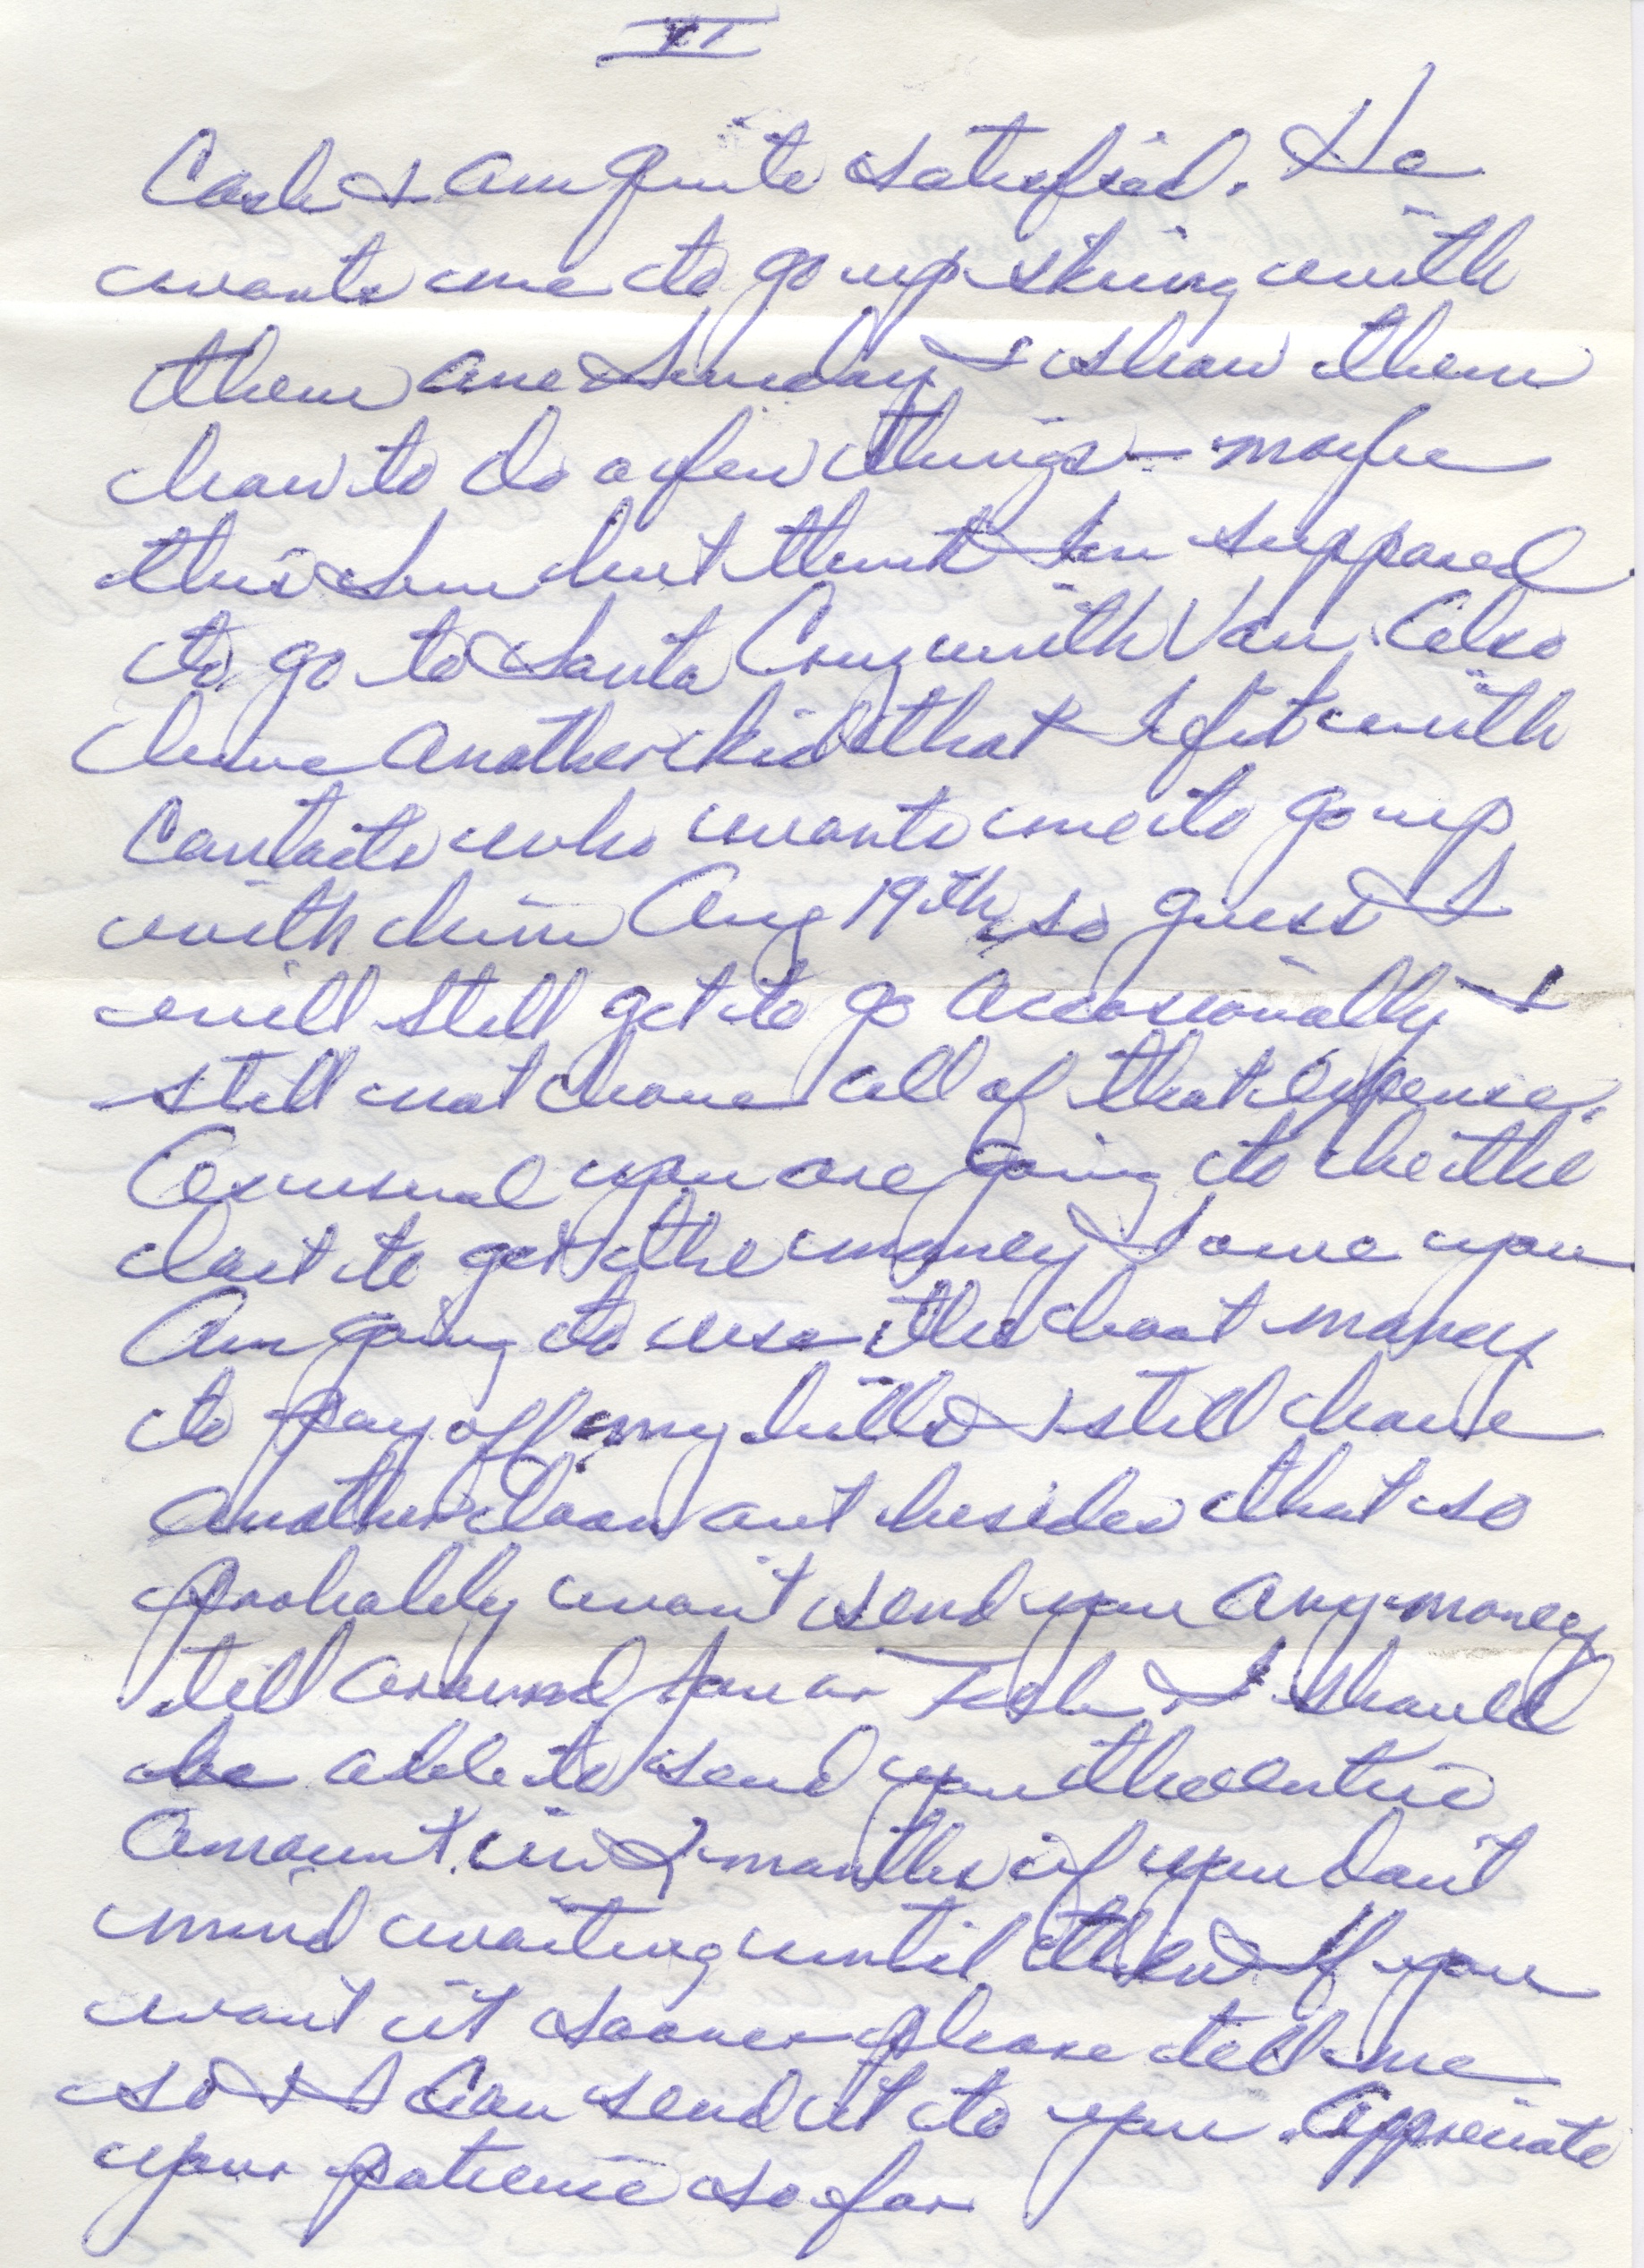 VI
Cash & am quite satisfied. He
wants me to go up skiing with
them one Sunday & show them
how to do a few things - maybe
this Sun but think I'm supposed
to go to Santa Cruz with Van. Also
have another kid that I fit with
Contacts who wants me to go up
with him Aug 19th, so guess I
will still get to go occasionally &
still not have all of that expense.
As usual you are going to be the
last to get the money I owe you
Am going to use the boat money
to pay off my bills & still have
another loan out besides that so
probably won't send you any money
till around Jan or Feb. I should
be able to send you the entire
amount in 2 months if you don't
mind waiting until then. If you
want it sooner please tell me
so I can send it to you. Appreciate
your patience so far